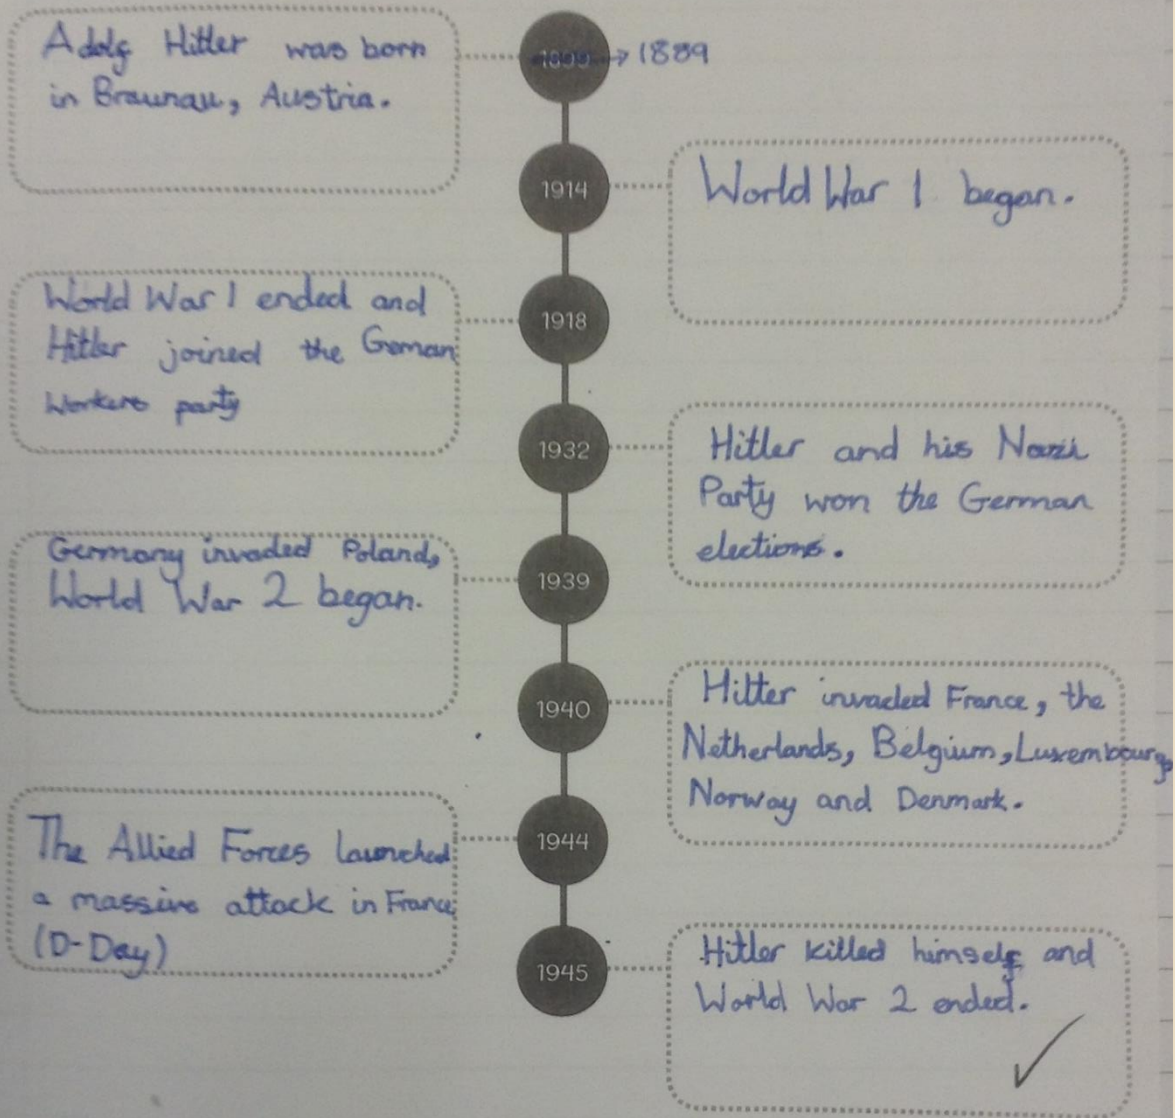 Adolf Hitler was born
in Braunau, Austria.
→ 1889
1914
World War 1 began.
World War 1 ended and
Hitler joined the German
Workers party
1918
1932
Hitler and his Nazi
Party won the German
elections.
Germany invaded Poland,
World War 2 began.
1939
1940
Hitler invaded France, the
Netherlands, Belgium, Luxembourg,
Norway and Denmark.
The Allied Forces launched
a massive attack in France
(D-Day)
1944
1945
Hitler killed himself and
World War 2 ended.